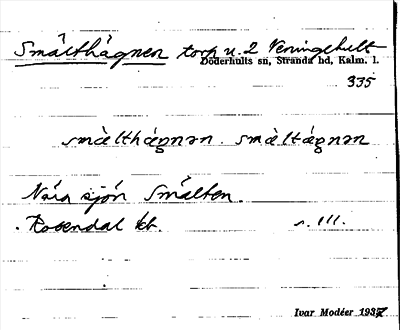 Smälthägnen torp u. 2 Veningehult
Döderhults sn, Stranda hd, Kalm. l.
335
smàlthágnən. smàltágnən
Nära sjön Smälten.
Rosendal kt. s. 111.
Ivar Modéer 1937